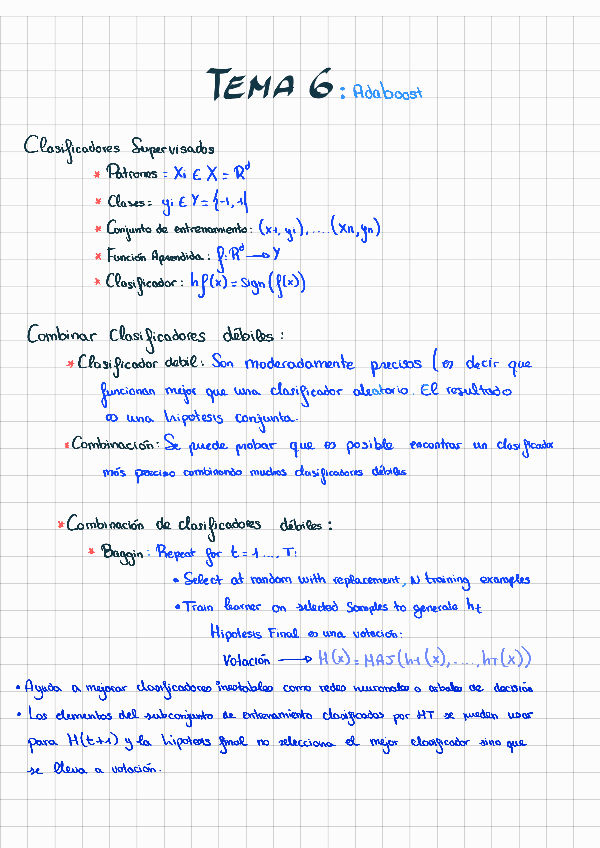 TEMA 6: Adaboost
Clasificadores Supervisados
* Patrones = Xi ∈ X = R^d
* Clases: yi ∈ Y = {-1, 1}
* Conjunto de entrenamiento: (x1, yi), .... (xn, yn)
* Función Aprendida: f: R^d → Y
* Clasificador: hf(x) = sign(f(x))
Combinar Clasificadores débiles:
* Clasificador debil: Son moderadamente precisos (es decir que
funcionan mejor que una clasificador aleatorio. El resultado
es una hipotesis conjunta.
* Combinación: Se puede probar que es posible encontrar un clasificador
más preciso combinando muchos clasificadores débiles
* Combinación de clasificadores débiles:
* Baggin: Repeat for t = 1 .... T:
• Select at random with replacement, N training examples
• Train learner on selected samples to generate ht
Hipotesis Final es una votación:
Votación → H(x) = MAJ(h1(x), ...., hT(x))
• Ayuda a mejorar clasificadores inestables como redes neuronales o arboles de decisión
• Los elementos del subconjunto de entrenamiento clasificados por HT se pueden usar
para H(t+1) y la hipotesis final no selecciona el mejor clasificador sino que
se lleva a votación.